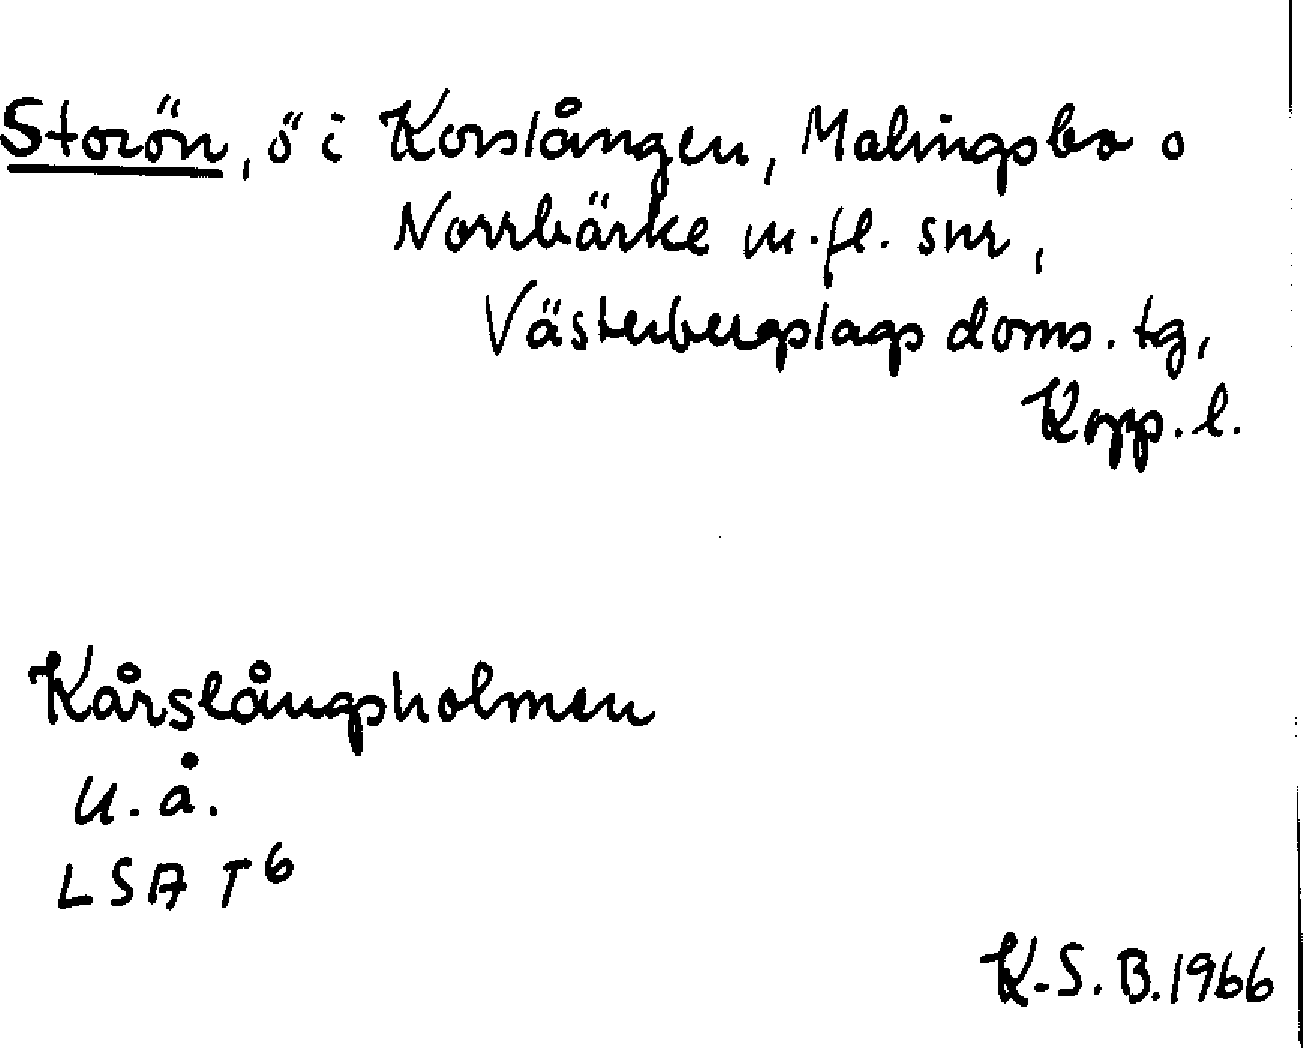 Storön, ö i Korslången, Malingsbo o
Norrbärke m.fl. snr,
Västerbergslags doms. tg,
Kopp. l.
Kårslångsholmen
u. å.
LSA T6
K.S.B. 1966